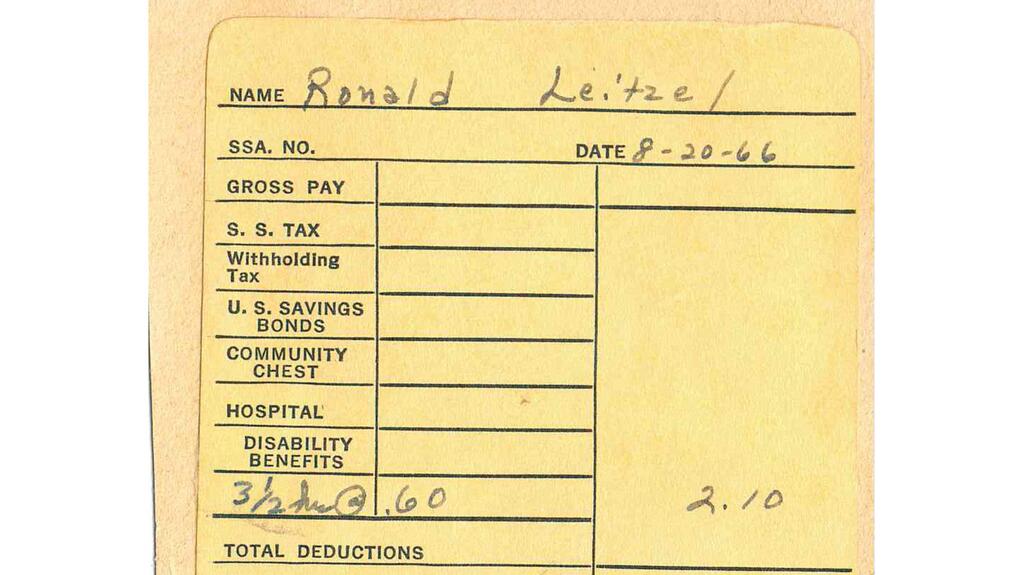 NAME Ronald Leitzel
SSA. NO. DATE 8-20-66
GROSS PAY
S. S. TAX
Withholding
Tax
U. S. SAVINGS
BONDS
COMMUNITY
CHEST
HOSPITAL
DISABILITY
BENEFITS
3 1/2 hrs @ .60 2.10
TOTAL DEDUCTIONS